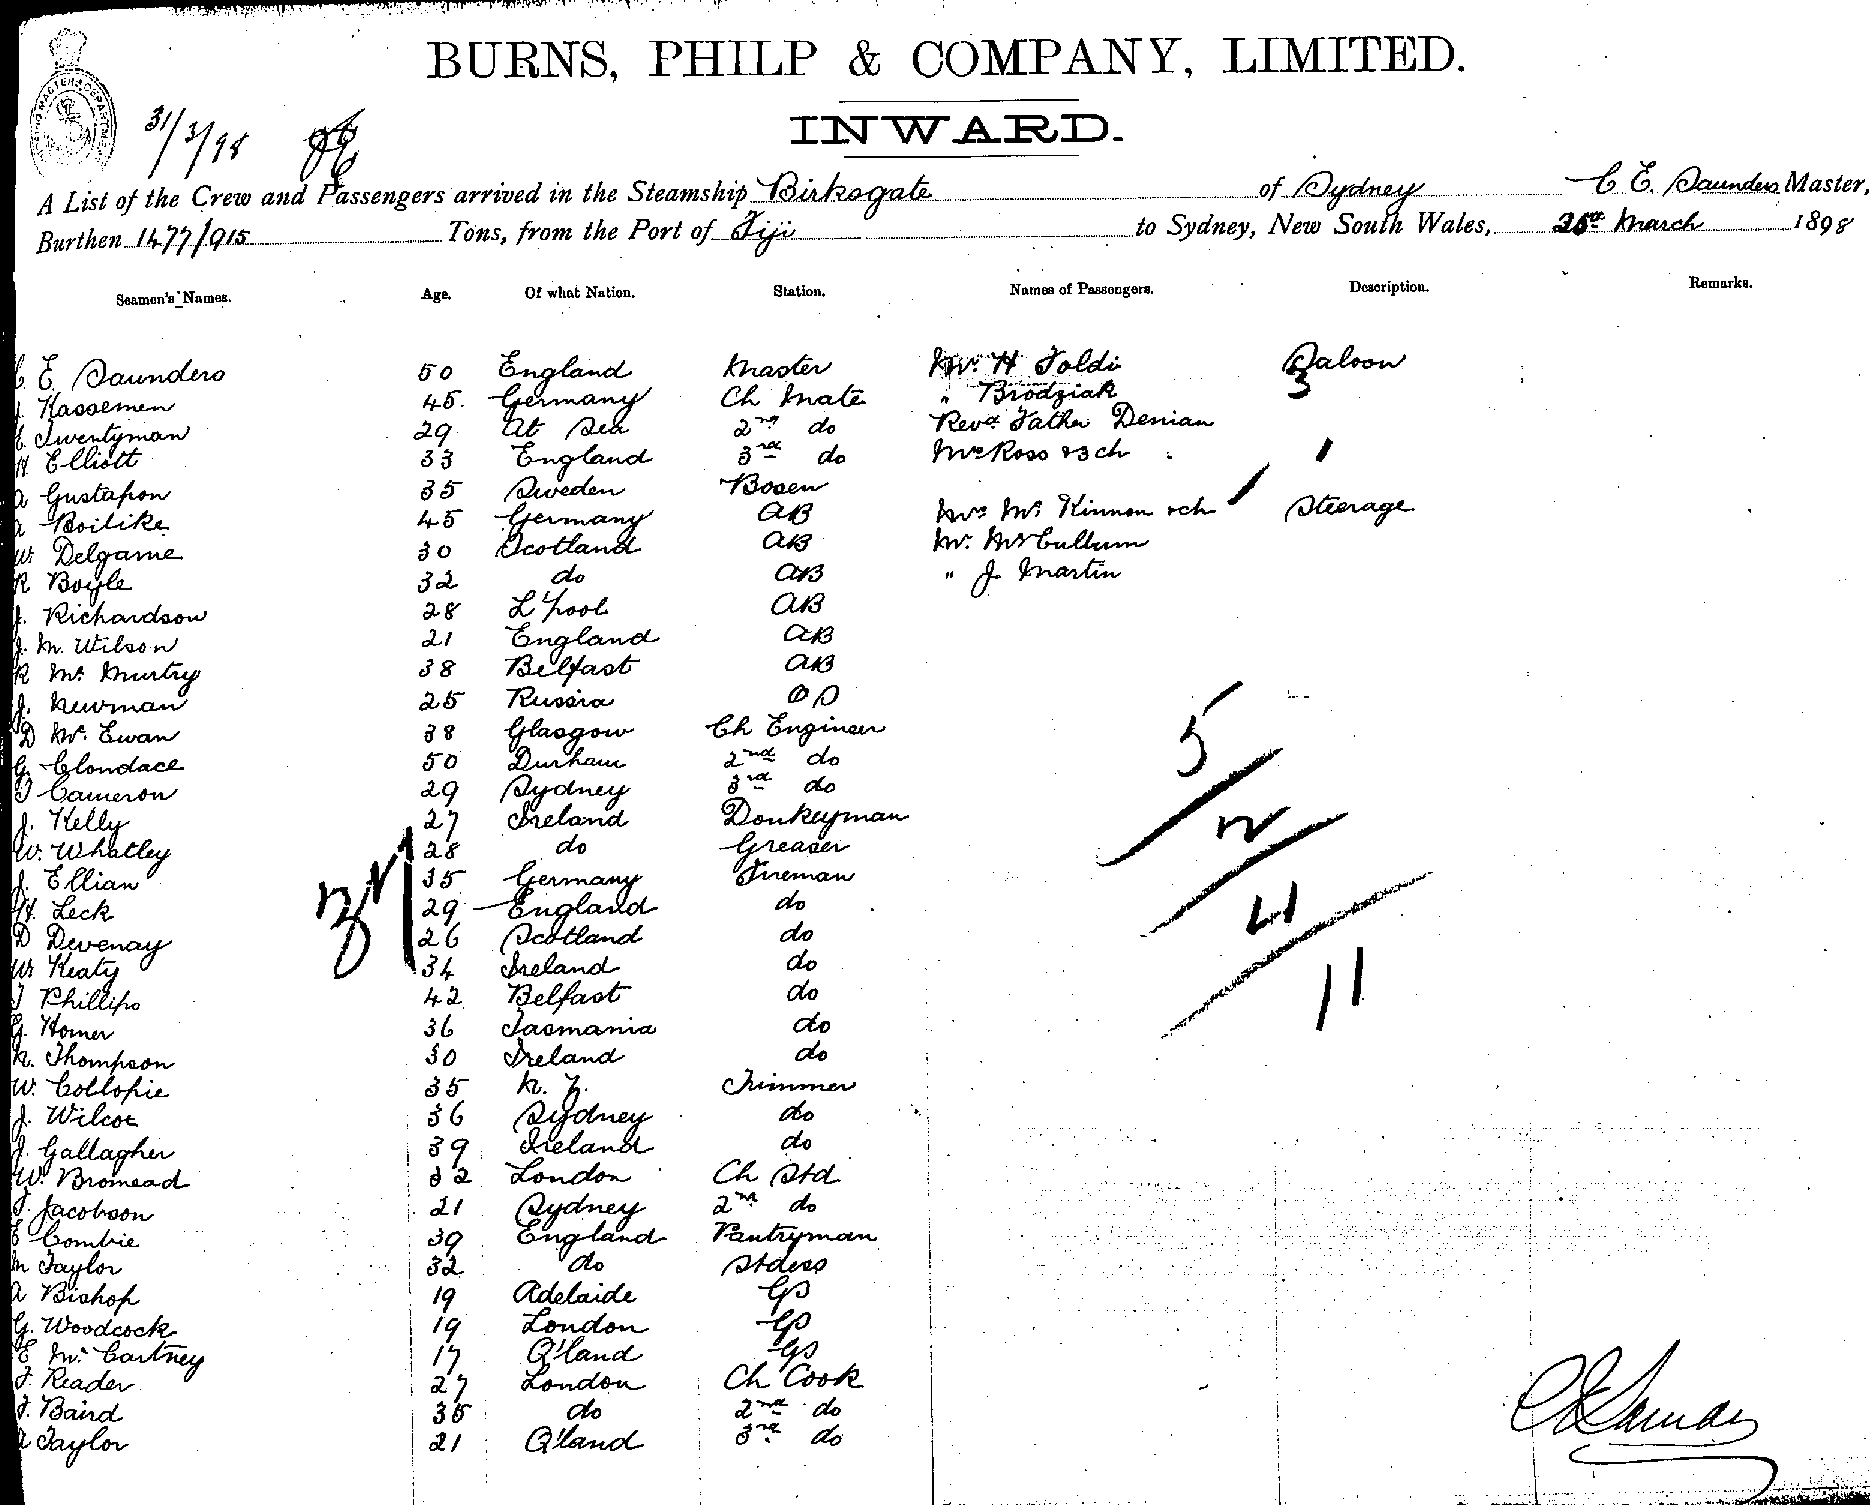 BURNS, PHILP & COMPANY, LIMITED.
INWARD.
31/3/98
A List of the Crew and Passengers arrived in the Steamship Birksgate of Sydney C E. Saunders Master,
Burthen 1477/915 Tons, from the Port of Fiji to Sydney, New South Wales, March 1898
Seamen's Names. Age. Of what Nation. Station. Names of Passengers. Description. Remarks.
C E. Saunders 50 England Master Mr. H Foldi Saloon
J. Kassemen 45 Germany Ch Mate " Brodziak 3
E. Twentyman 29 At Sea 2nd do Revd Father Denian
H Elliott 33 England 3rd do Mrs Ross & 3 ch 1
A Gustafson 35 Sweden Bosen
A Boilike 45 Germany AB Mrs Mc Kinnon & ch Steerage
W. Delgarne 30 Scotland AB Mr. McCullum
R Boyle 32 do AB " J. Martin
J. Richardson 28 L'pool AB
J. M. Wilson 21 England AB
R Mc Murtry 38 Belfast AB
J. Newman 25 Russia OS
D Mc Ewan 38 Glasgow Ch Engineer
G. Clondace 50 Durham 2nd do
J Cameron 29 Sydney 3rd do
J. Kelly 27 Ireland Donkeyman
W. Whatley 28 do Greaser
J. Ellian 35 Germany Fireman
H. Leck 29 England do
D Devenay 26 Scotland do
W Keaty 34 Ireland do
J Phillips 42 Belfast do
G. Homer 36 Tasmania do
N. Thompson 30 Ireland do
W. Collopie 35 N. Z. Trimmer
J. Wilcox 36 Sydney do
J. Gallagher 39 Ireland do
W. Bromead 32 London Ch Std
J. Jacobson 21 Sydney 2nd do
E Combie 39 England Pantryman
M Taylor 32 do Stdess
A Bishop 19 Adelaide GS
G. Woodcock 19 London GS
E Mc Cartney 17 Q'land GS
F. Reader 27 London Ch Cook
J. Baird 35 do 2nd do
A Taylor 21 Q'land 3rd do
37
5
2
4
11